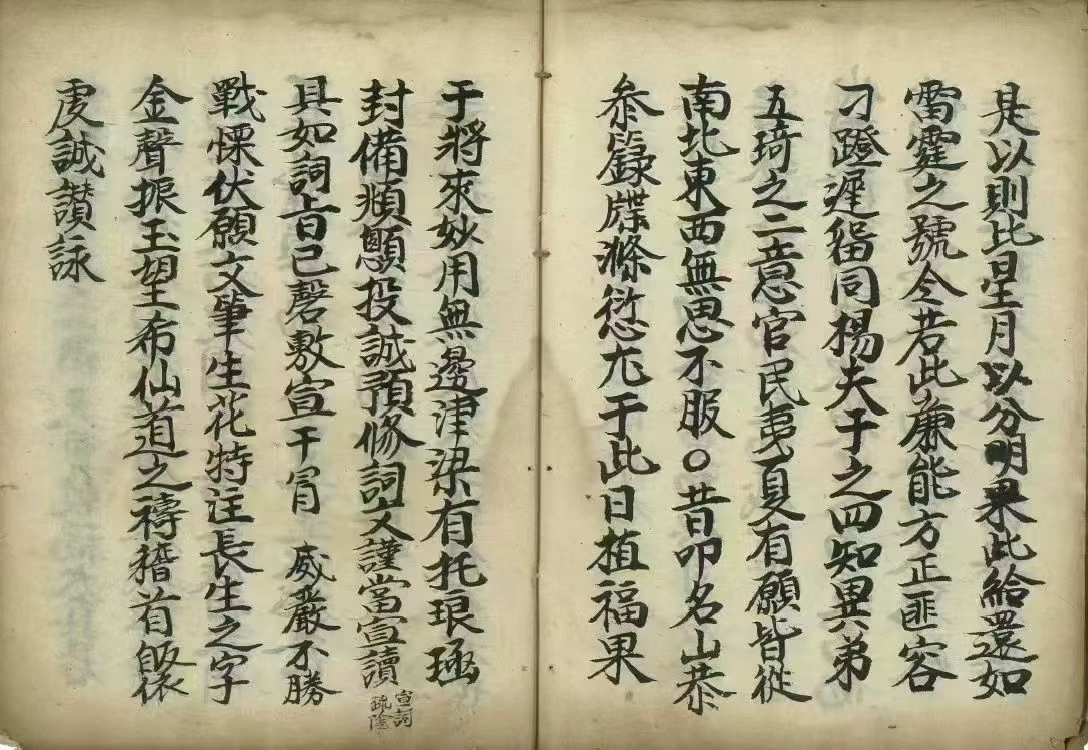 是以則比星月以分明果此給還如
雷霆之號令若此廉能方正匪容
刁蹬遲留同楊夫子之四知異弟
五琦之二意官民夷夏有願皆從
南北東西無思不服○昔叩名山恭
叅籙牒滌愆尤于此日植福果
于將來妙用無邊津梁有托琅函
封備頫顖投誠預修詞文謹當宣讀
宣詞
疏陰
具如詞旨已磬敷宣干冒 威嚴不勝
戰慄伏願文筆生花特注長生之字
金聲振玉望希仙道之禱稽首皈依
虔誠讃詠